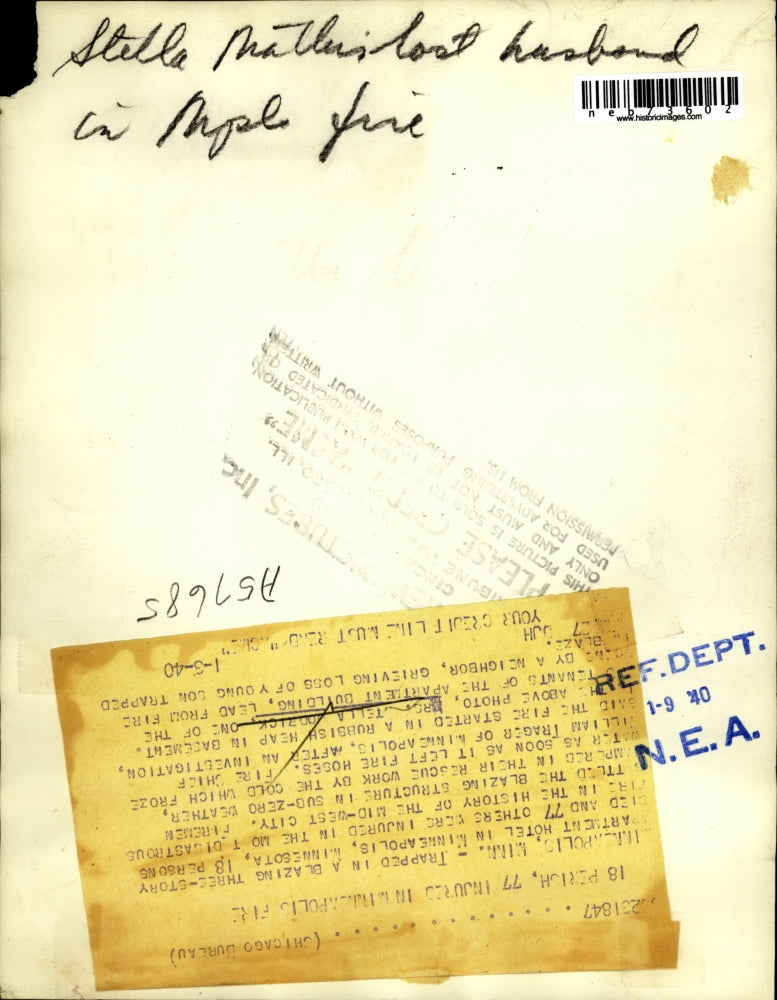 Stella Mathis lost husband
in Mpls fire
neb73602
www.historicimages.com
PICTURES, Inc.
PLEASE CREDIT "ACME"
THIS PICTURE IS SOLD TO
ONLY AND MUST NOT BE
USED FOR ADVERTISING PURPOSES WITHOUT WRITTEN
PERMISSION FROM US.
A57685
REF. DEPT.
1-9 '40
N.E.A.
231847 (CHICAGO BUREAU)
18 PERISH, 77 INJURED IN MINNEAPOLIS FIRE
MINNEAPOLIS, MINN. - TRAPPED IN A BLAZING THREE-STORY
APARTMENT HOTEL IN MINNEAPOLIS, MINNESOTA, 18 PERSONS
DIED AND 77 OTHERS WERE INJURED IN THE MO T DISASTROUS
FIRE IN THE HISTORY OF THE MID-WEST CITY. FIREMEN
TTLED THE BLAZING STRUCTURE IN SUB-ZERO WEATHER,
AMPERED IN THEIR RESCUE WORK BY THE COLD WHICH FROZE
WATER AS SOON AS IT LEFT FIRE HOSES. FIRE CHIEF
WILLIAM TRAGER OF MINNEAPOLIS, AFTER AN INVESTIGATION,
SAID THE FIRE STARTED IN A RUBBISH HEAP IN BACEMENT.
THE ABOVE PHOTO, MRS. STELLA ODRICK, ONE OF THE
TENANTS OF THE APARTMENT BUILDING, LEAD FROM FIRE
BY A NEIGHBOR, GRIEVING LOSS OF YOUNG SON TRAPPED
BLAZE.
DJH 1-3-40
YOUR CREDIT LINE MUST READ "ACME"